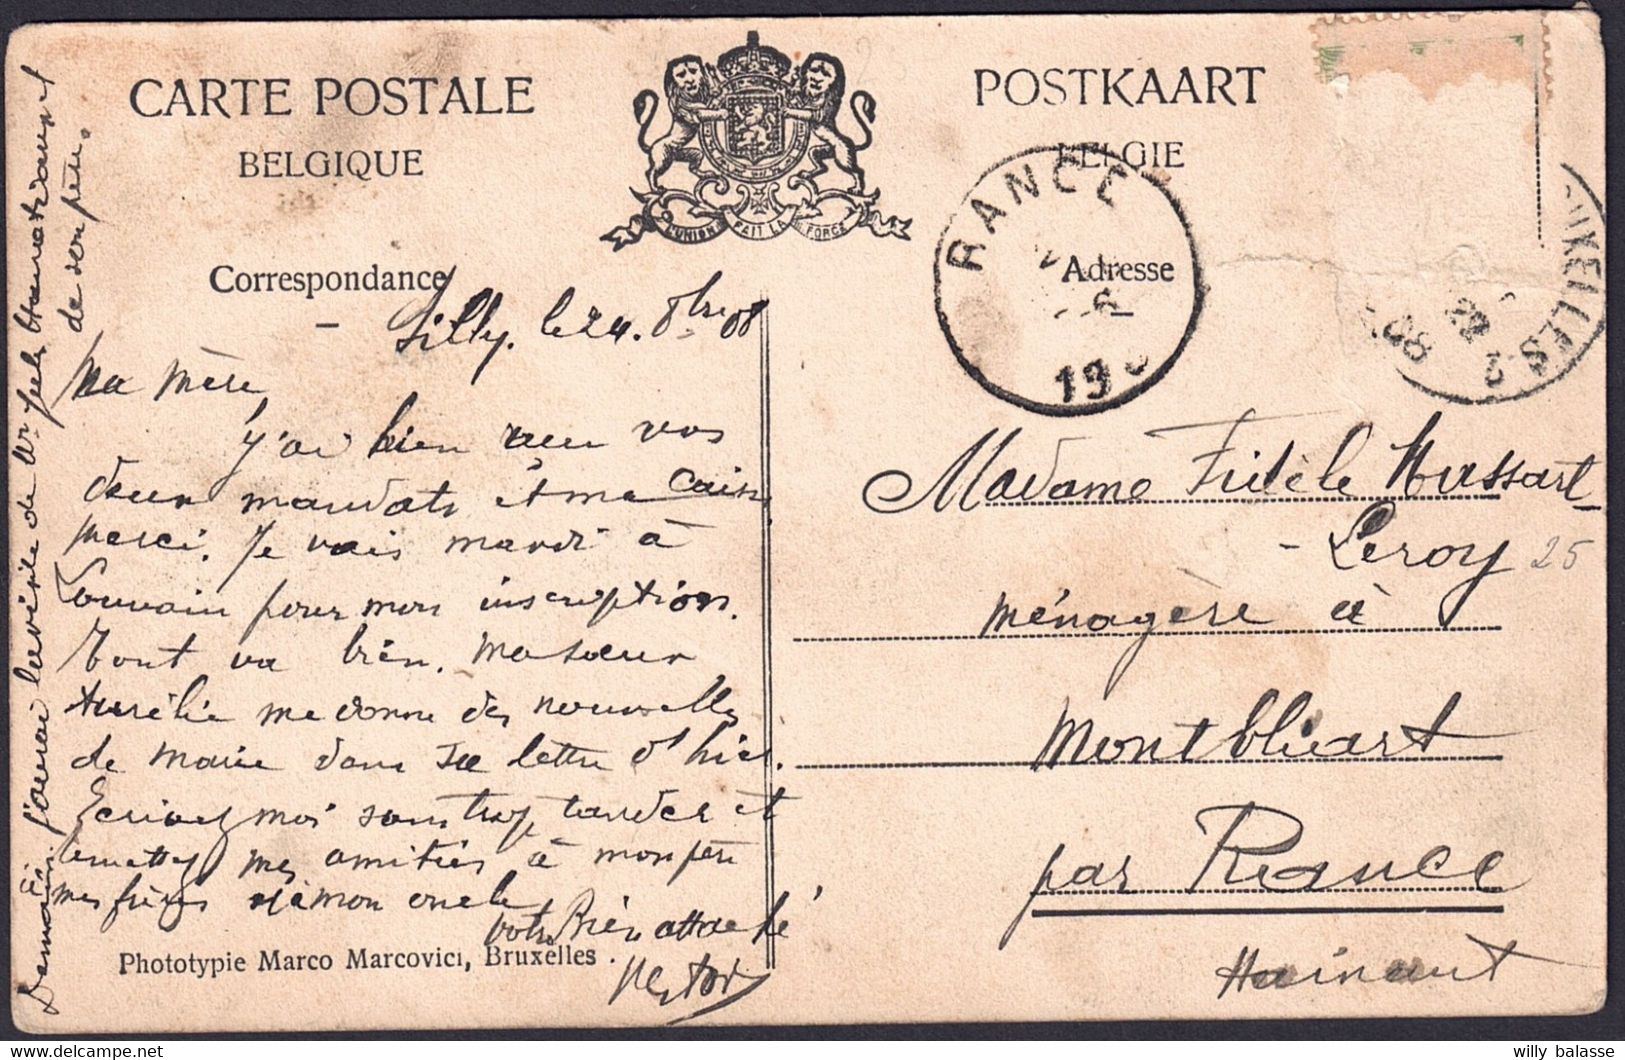 CARTE POSTALE
BELGIQUE
POSTKAART
BELGIE
L'UNION FAIT LA FORCE
RANCE
19
08
Correspondance
Adresse
Silly, le 24. 8bre 08
Ma mère,
J'ai bien reçu vos
deux mandats et ma caisse
merci. Je vais mardi à
Louvain pour mon inscription.
Tout va bien. Ma soeur
Aurélie me donne des nouvelles
de Marie dans sa lettre d'hier.
Ecrivez moi sans trop tarder et
remettez mes amitiés à mon père
mes frères et à mon oncle
votre Bien attaché
Nestor
Demain j'aurai la visite de Mr
de son père.
Madame Fidèle Hussart-
- Leroy 25
ménagère à
Montbliart
par Rance
Hainaut
Phototypie Marco Marcovici, Bruxelles.
willy balasse